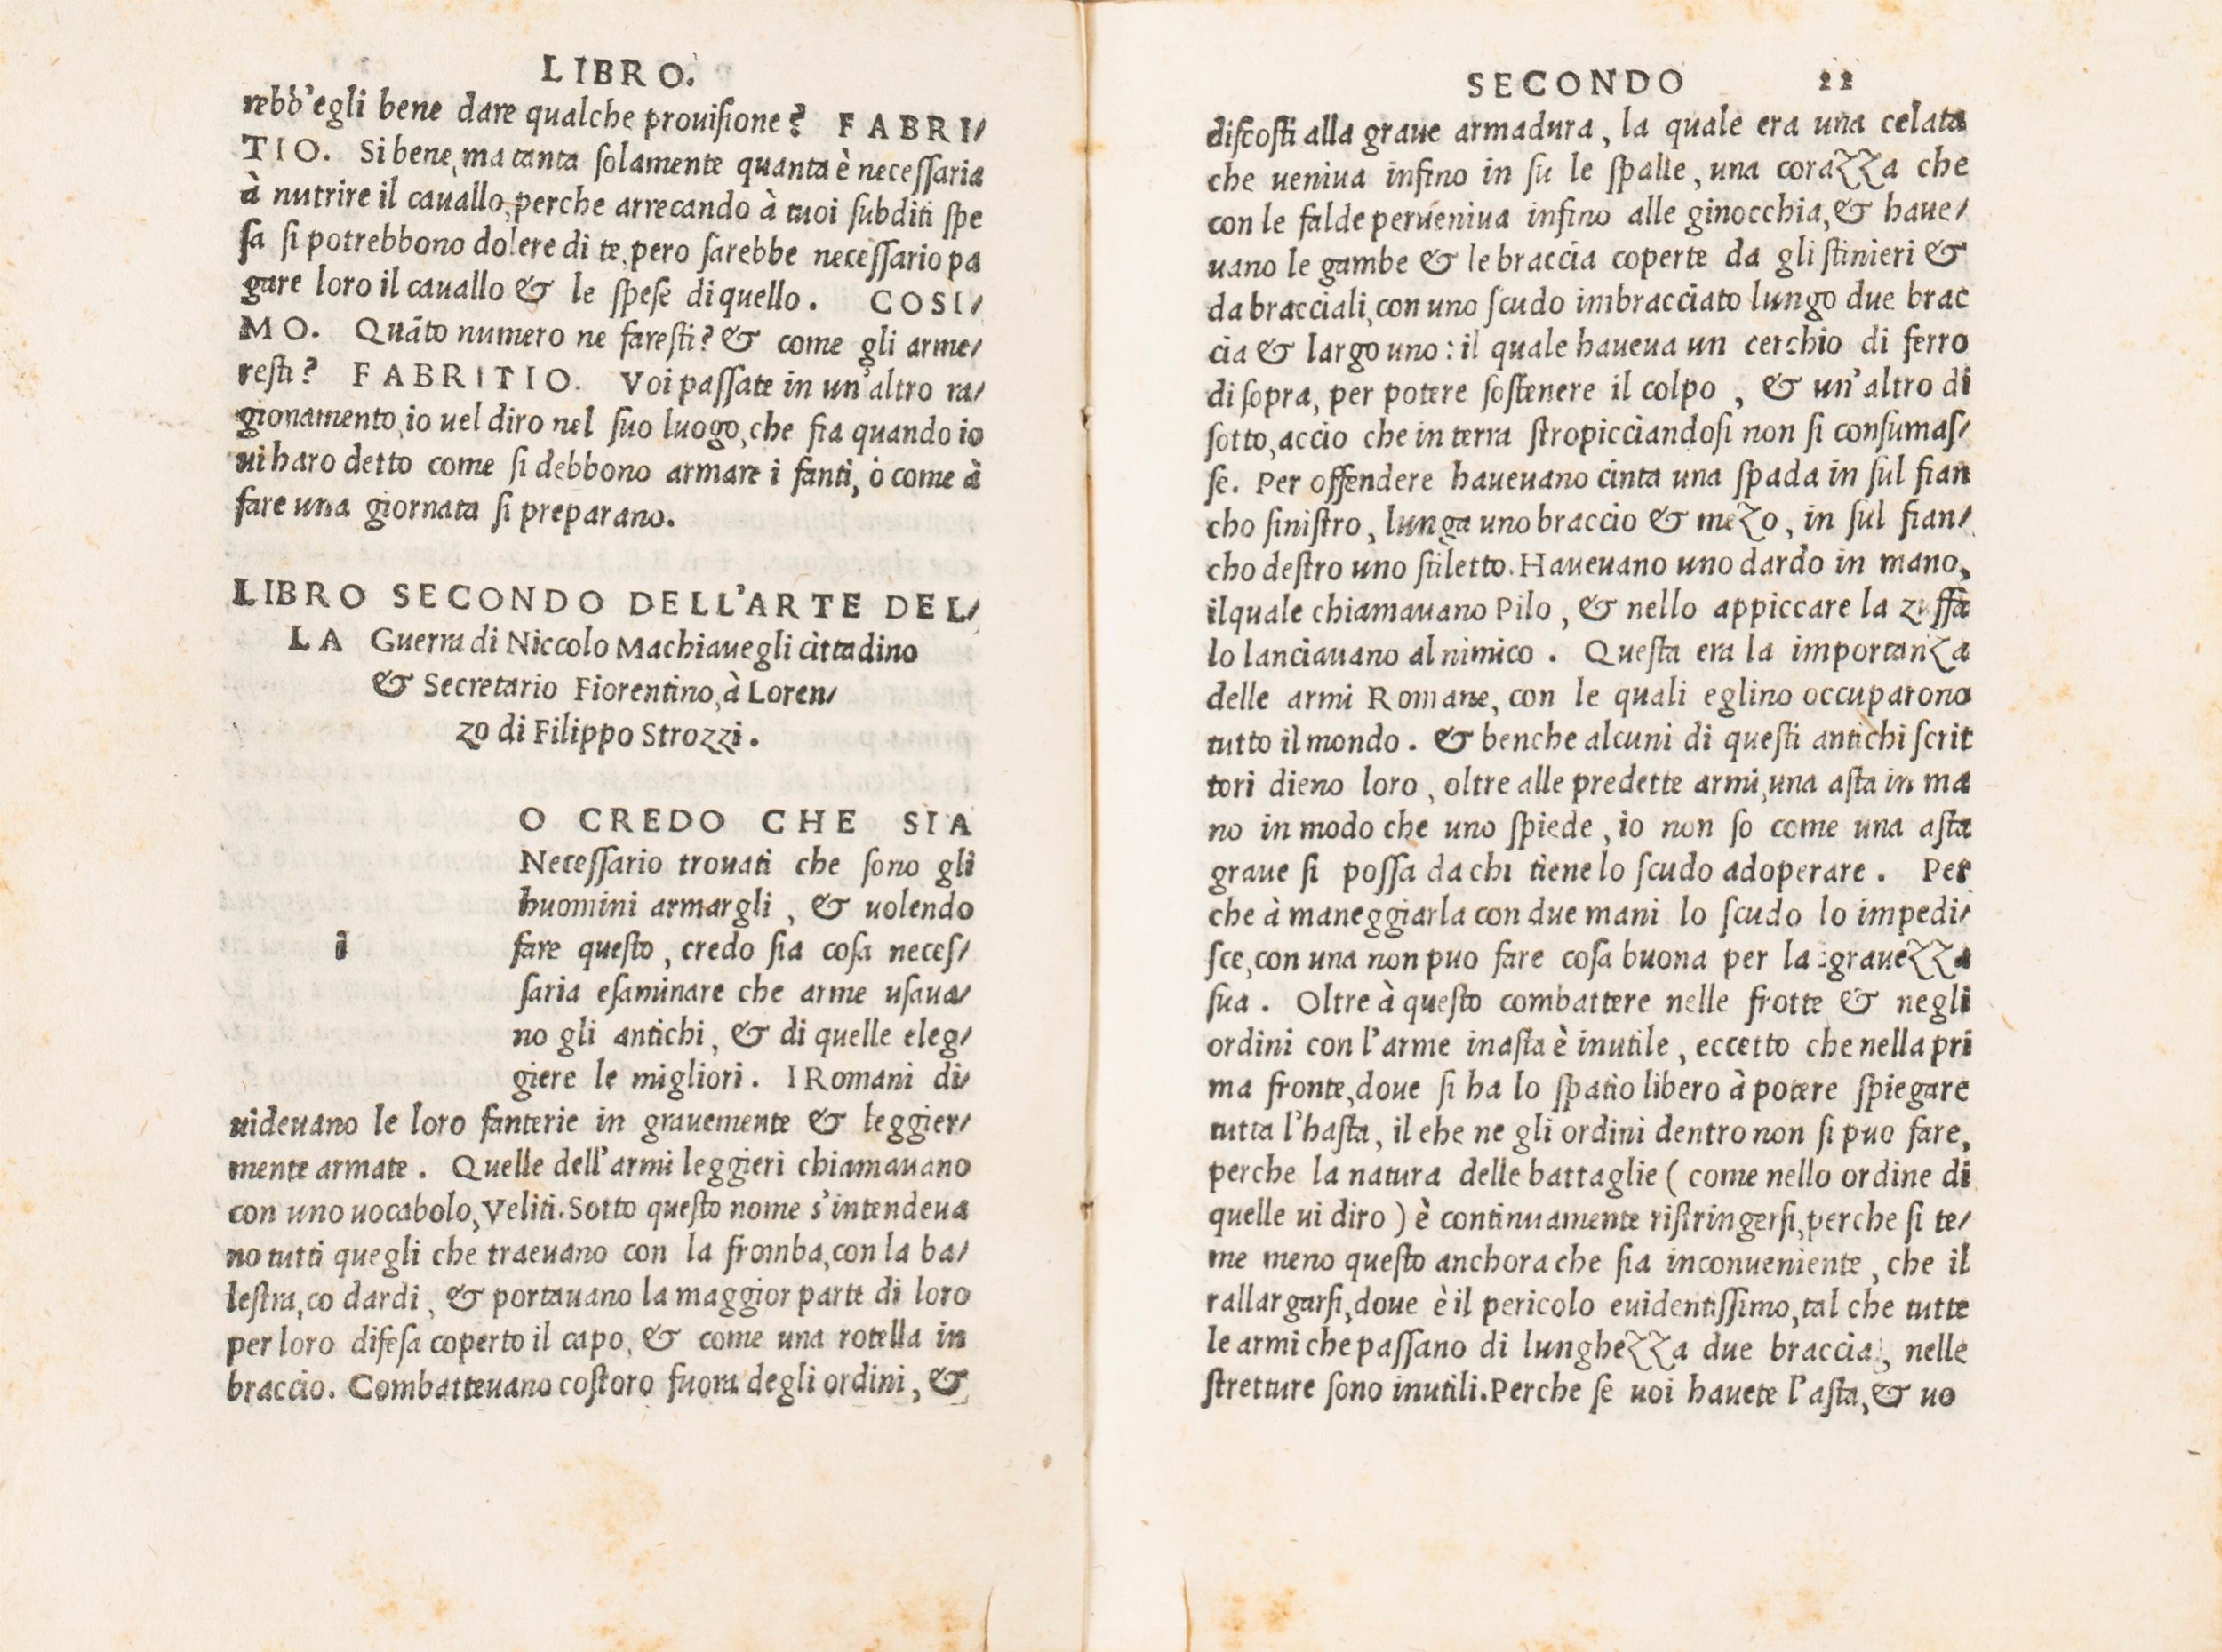 LIBRO.
rebb'egli bene dare qualche prouisione? FABRI/
TIO. Si bene, ma tanta solamente quanta è necessaria
à nutrire il cauallo, perche arrecando à tuoi subditi spe
sa si potrebbono dolere di te, pero sarebbe necessario pa
gare loro il cauallo & le spese di quello. COSI/
MO. Quãto numero ne faresti? & come gli arme/
resti? FABRITIO. Voi passate in un'altro ra/
gionamento, io uel diro nel suo luogo, che fia quando io
ui haro detto come si debbono armare i fanti, ò come à
fare una giornata si preparano.
LIBRO SECONDO DELL'ARTE DEL/
LA Guerra di Niccolo Machiauegli cittadino
& Secretario Fiorentino, à Loren/
zo di Filippo Strozzi.
i
O CREDO CHE SIA
Necessario trouati che sono gli
huomini armargli, & uolendo
fare questo, credo sia cosa neces/
saria esaminare che arme usaua/
no gli antichi, & di quelle eleg/
giere le migliori. I Romani di/
uideuano le loro fanterie in grauemente & leggier/
mente armate. Quelle dell'armi leggieri chiamauano
con uno uocabolo, Veliti. Sotto questo nome s'intendeua
no tutti quegli che traeuano con la fromba, con la ba/
lestra, co dardi, & portauano la maggior parte di loro
per loro difesa coperto il capo, & come una rotella in
braccio. Combatteuano costoro fuora degli ordini, &
SECONDO 22
discosti alla graue armadura, la quale era una celata
che ueniua infino in su le spalle, una corazza che
con le falde perueniua infino alle ginocchia, & haue/
uano le gambe & le braccia coperte da gli stinieri &
da bracciali, con uno scudo imbracciato lungo due brac
cia & largo uno: il quale haueua un cerchio di ferro
di sopra, per potere sostenere il colpo, & un'altro di
sotto, accio che in terra stropicciandosi non si consumas/
se. Per offendere haueuano cinta una spada in sul fian
cho sinistro, lunga uno braccio & mezo, in sul fian/
cho destro uno stiletto. Haueuano uno dardo in mano,
ilquale chiamauano Pilo, & nello appiccare la zuffa
lo lanciauano al nimico. Questa era la importanza
delle armi Romane, con le quali eglino occuparono
tutto il mondo. & benche alcuni di questi antichi scrit
tori dieno loro, oltre alle predette armi, una asta in ma
no in modo che uno spiede, io non so come una asta
graue si possa da chi tiene lo scudo adoperare. Per
che à maneggiarla con due mani lo scudo lo impedi/
sce, con una non puo fare cosa buona per la grauezza
sua. Oltre à questo combattere nelle frotte & negli
ordini con l'arme inasta è inutile, eccetto che nella pri
ma fronte, doue si ha lo spatio libero à potere spiegare
tutta l'hasta, il ehe ne gli ordini dentro non si puo fare,
perche la natura delle battaglie ( come nello ordine di
quelle ui diro ) è continuamente ristringersi, perche si te/
me meno questo anchora che sia inconueniente, che il
rallargarsi, doue è il pericolo euidentissimo, tal che tutte
le armi che passano di lunghezza due braccia, nelle
stretture sono inutili. Perche se uoi hauete l'asta, & uo